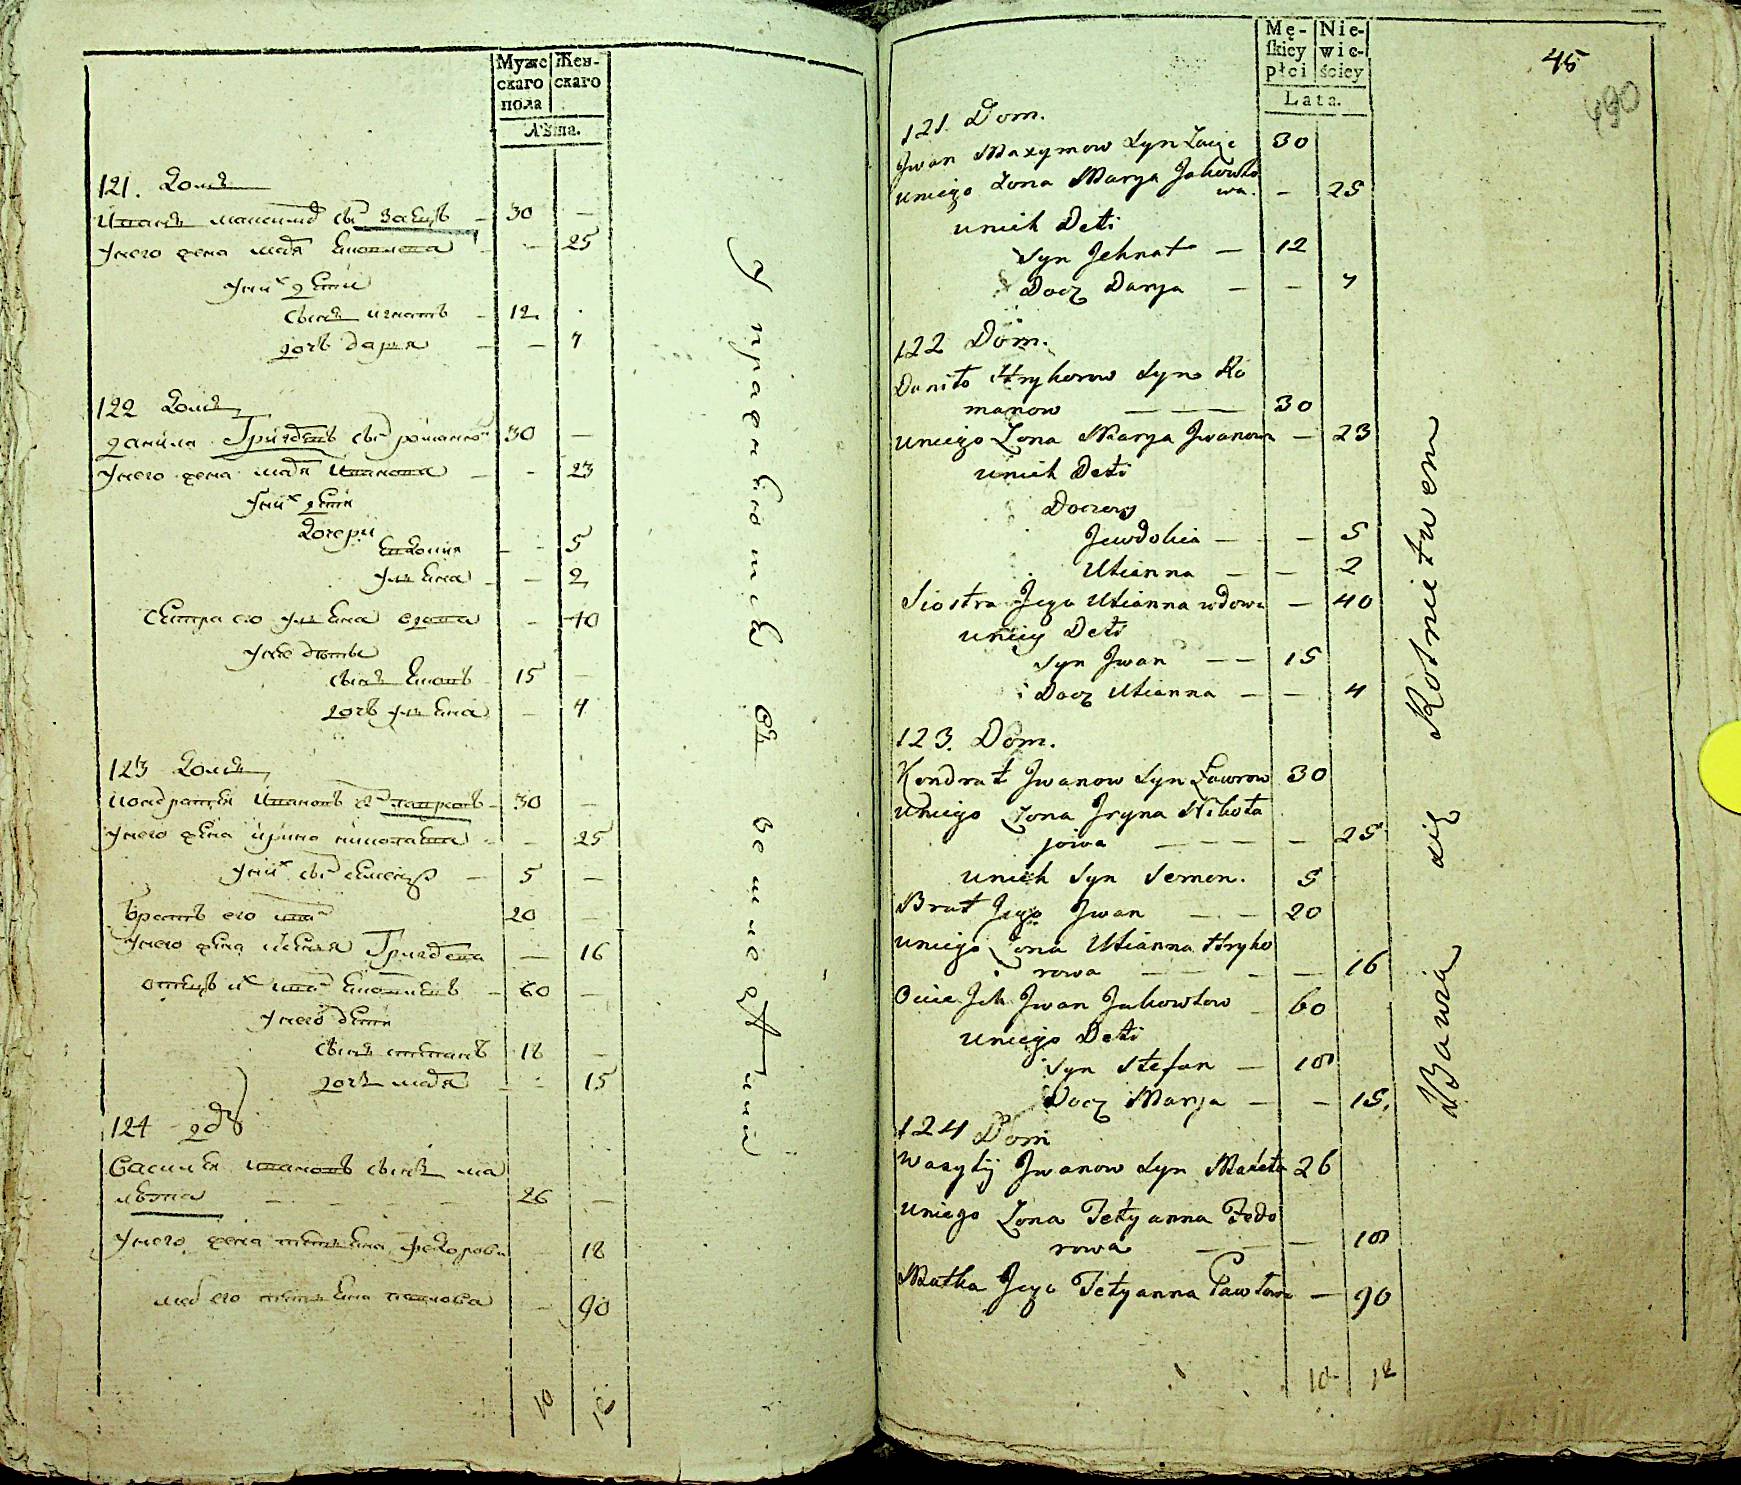 Муже Жен-
скаго скаго
пола
Лѣта.
121. Домъ
Иванъ максимо сы Заецъ - 30 -
У него жена Яковлева - - 25
У них дети
сынъ игнатъ - 12
дочь дарья - - 7
122 Домъ
данила Григоревъ сы романо 30 -
У него жена Иванова - - 23
У них дети
дочери
Евдокия - - 5
Ульена - - 2
Сестра его Ульена вдова - 40
У нее дети
сынъ 15 -
дочь Ульена - 4
123 Домъ
кондратей Ивановъ сы лавровъ - 30 -
У него жена ирина николаева - - 25
У них сы 5 -
братъ его ива 20 -
У него жена Григорева - 16
отецъ их ива Яковлевъ - 60 -
У него дети
сынъ степанъ 18 -
дочь - - 15
124 - дво
Василей Ивановъ сынъ ма
26 -
У него жена татьена федорова - 18
его татьена павлова - 90
10 12
У пражнѣютца въ вине
Mę- Nie-
skiey wie-
płci ściey
Lata.
45
490
121. Dom.
Jwan Maxymow Syn Zaięc 30
uniego Zona Marya Jakowło
wa. - 25
unich Deti
Syn Jehnat - 12
Docz Darya - - 7
122 Dom.
Daniło Hryhorow Syn Ro
manow - - - 30
uniego Zona Marya Jwanowa - 23
unich Deti
Doczery
Jewdokia - - 5
Ulianna - - 2
Siostra Jego Ulianna wdowa - 40
uniey Deti
Syn Jwan - - 15
Docz Ulianna - - 4
123. Dom.
Kondrat Jwanow Syn Ławrow 30
uniego Zona Jryna Nikoła
jowa - - - - 25
unich Syn Semen. 5
Brat Jego Jwan - - 20
uniego Zona Ulianna Hryho
rowa - - - - 16
Ociec Jch Jwan Jakowlow - 60
uniego Deti
Syn Stefan - 18
Docz Marya - - 15.
124 Dom
Wasyly Jwanow Syn 26
uniego Zona Tetyanna Fedo
rowa - - - 18
Matka Jego Tetyanna Pawłowa - 90
10 12
Bawią się Rolnictwem